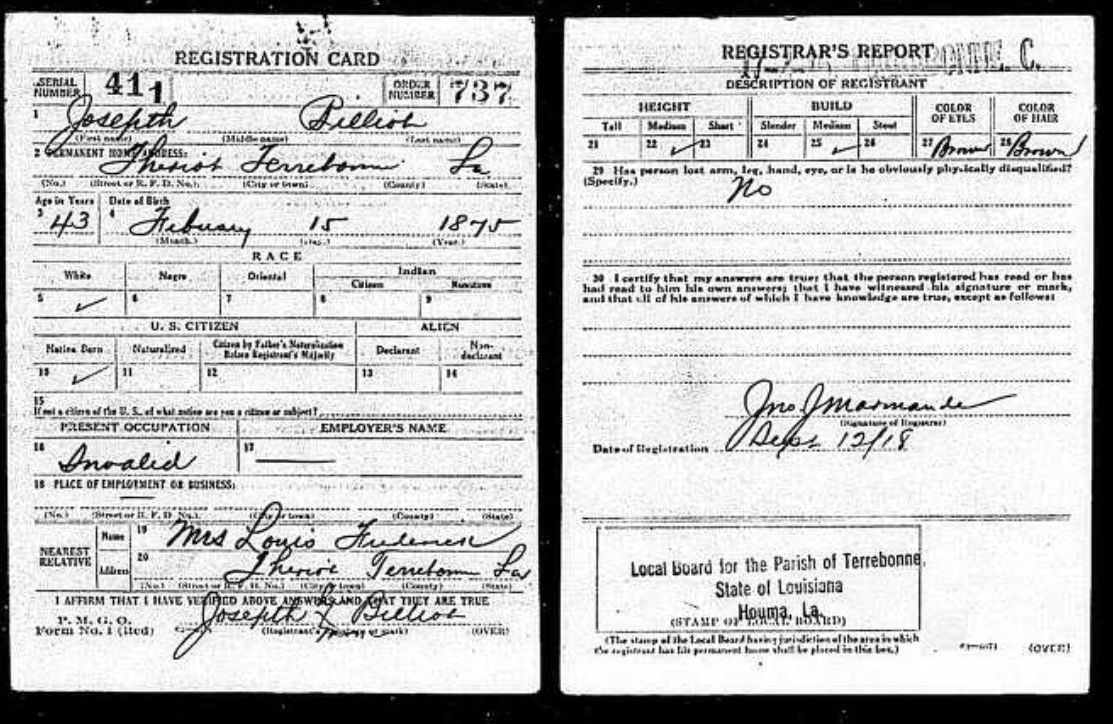 REGISTRATION CARD
SERIAL NUMBER 411 ORDER NUMBER 737
1 Josepth Billiot
(First name) (Middle name) (Last name)
2 PERMANENT HOME ADDRESS: Theriot Terrebonn La
(No.) (Street or R. F. D. No.) (City or town) (County) (State)
Age in Years Date of Birth
3 43 4 Febuary 15 1875
(Month.) (Day.) (Year.)
RACE
White Negro Oriental Indian
Citizen Noncitizen
5 ✓ 6 7 8 9
U. S. CITIZEN ALIEN
Native Born Naturalized Citizen by Father's Naturalization Before Registrant's Majority Declarant Non-declarant
10 ✓ 11 12 13 14
15
If not a citizen of the U. S., of what nation are you a citizen or subject?
PRESENT OCCUPATION EMPLOYER'S NAME
16 Invalied 17
18 PLACE OF EMPLOYMENT OR BUSINESS:
(No.) (Street or R. F. D. No.) (City or town) (County) (State)
NEAREST RELATIVE Name 19 Mrs Louis
Address 20 Theriot Terrebonn La
(No.) (Street or R. F. D. No.) (City or town) (County) (State)
I AFFIRM THAT I HAVE VERIFIED ABOVE ANSWERS AND THAT THEY ARE TRUE
P. M. G. O.
Form No. 1 (Red) Josepth Billiot
(Registrant's signature or mark) (OVER)
REGISTRAR'S REPORT
C.
DESCRIPTION OF REGISTRANT
HEIGHT BUILD COLOR OF EYES COLOR OF HAIR
Tall Medium Short Slender Medium Stout
21 22 ✓ 23 24 25 ✓ 26 27 Brown 28 Brown
29 Has person lost arm, leg, hand, eye, or is he obviously physically disqualified?
(Specify.) No
30 I certify that my answers are true; that the person registered has read or has
had read to him his own answers; that I have witnessed his signature or mark,
and that all of his answers of which I have knowledge are true, except as follows:
Jno J Marmande
(Signature of Registrar)
Date of Registration Sept 12/18
Local Board for the Parish of Terrebonne,
State of Louisiana
Houma, La.
(STAMP OF LOCAL BOARD)
(The stamp of the Local Board having jurisdiction of the area in which
the registrant has his permanent home shall be placed in this box.)
(OVER)